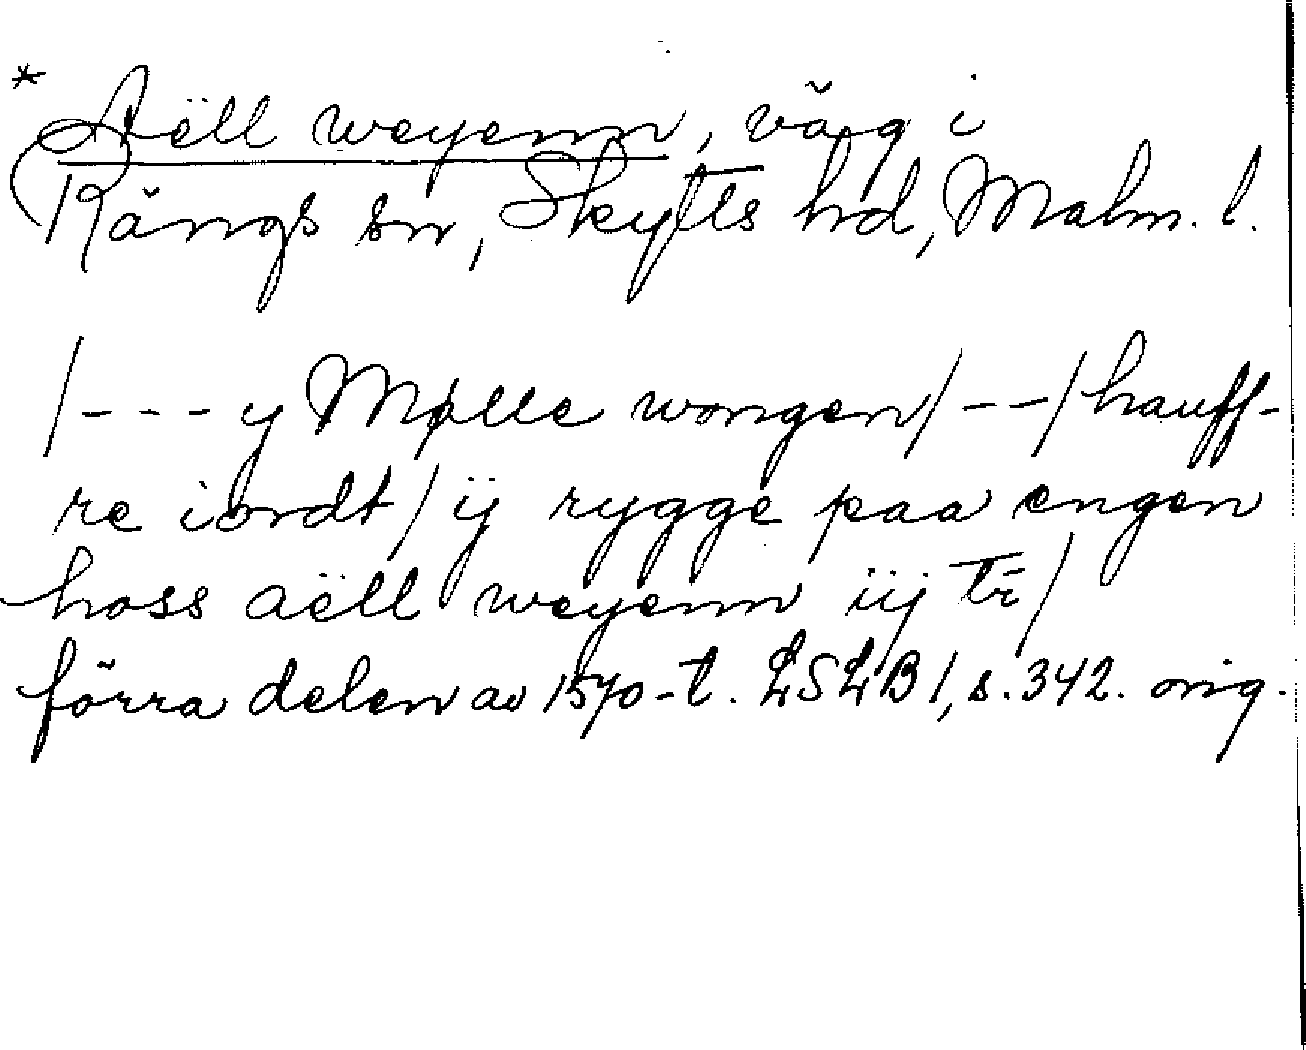 * Aëll weyenn, väg i
Rängs sn, Skytts hd, Malm. l.
/--- y Mølle wongen/--/hauff-
re iordt/ ÿ rygge paa engen
hoss aëll weyenn iij tr/
förra delen av 1570-t. LSLB 1, s. 342. orig.